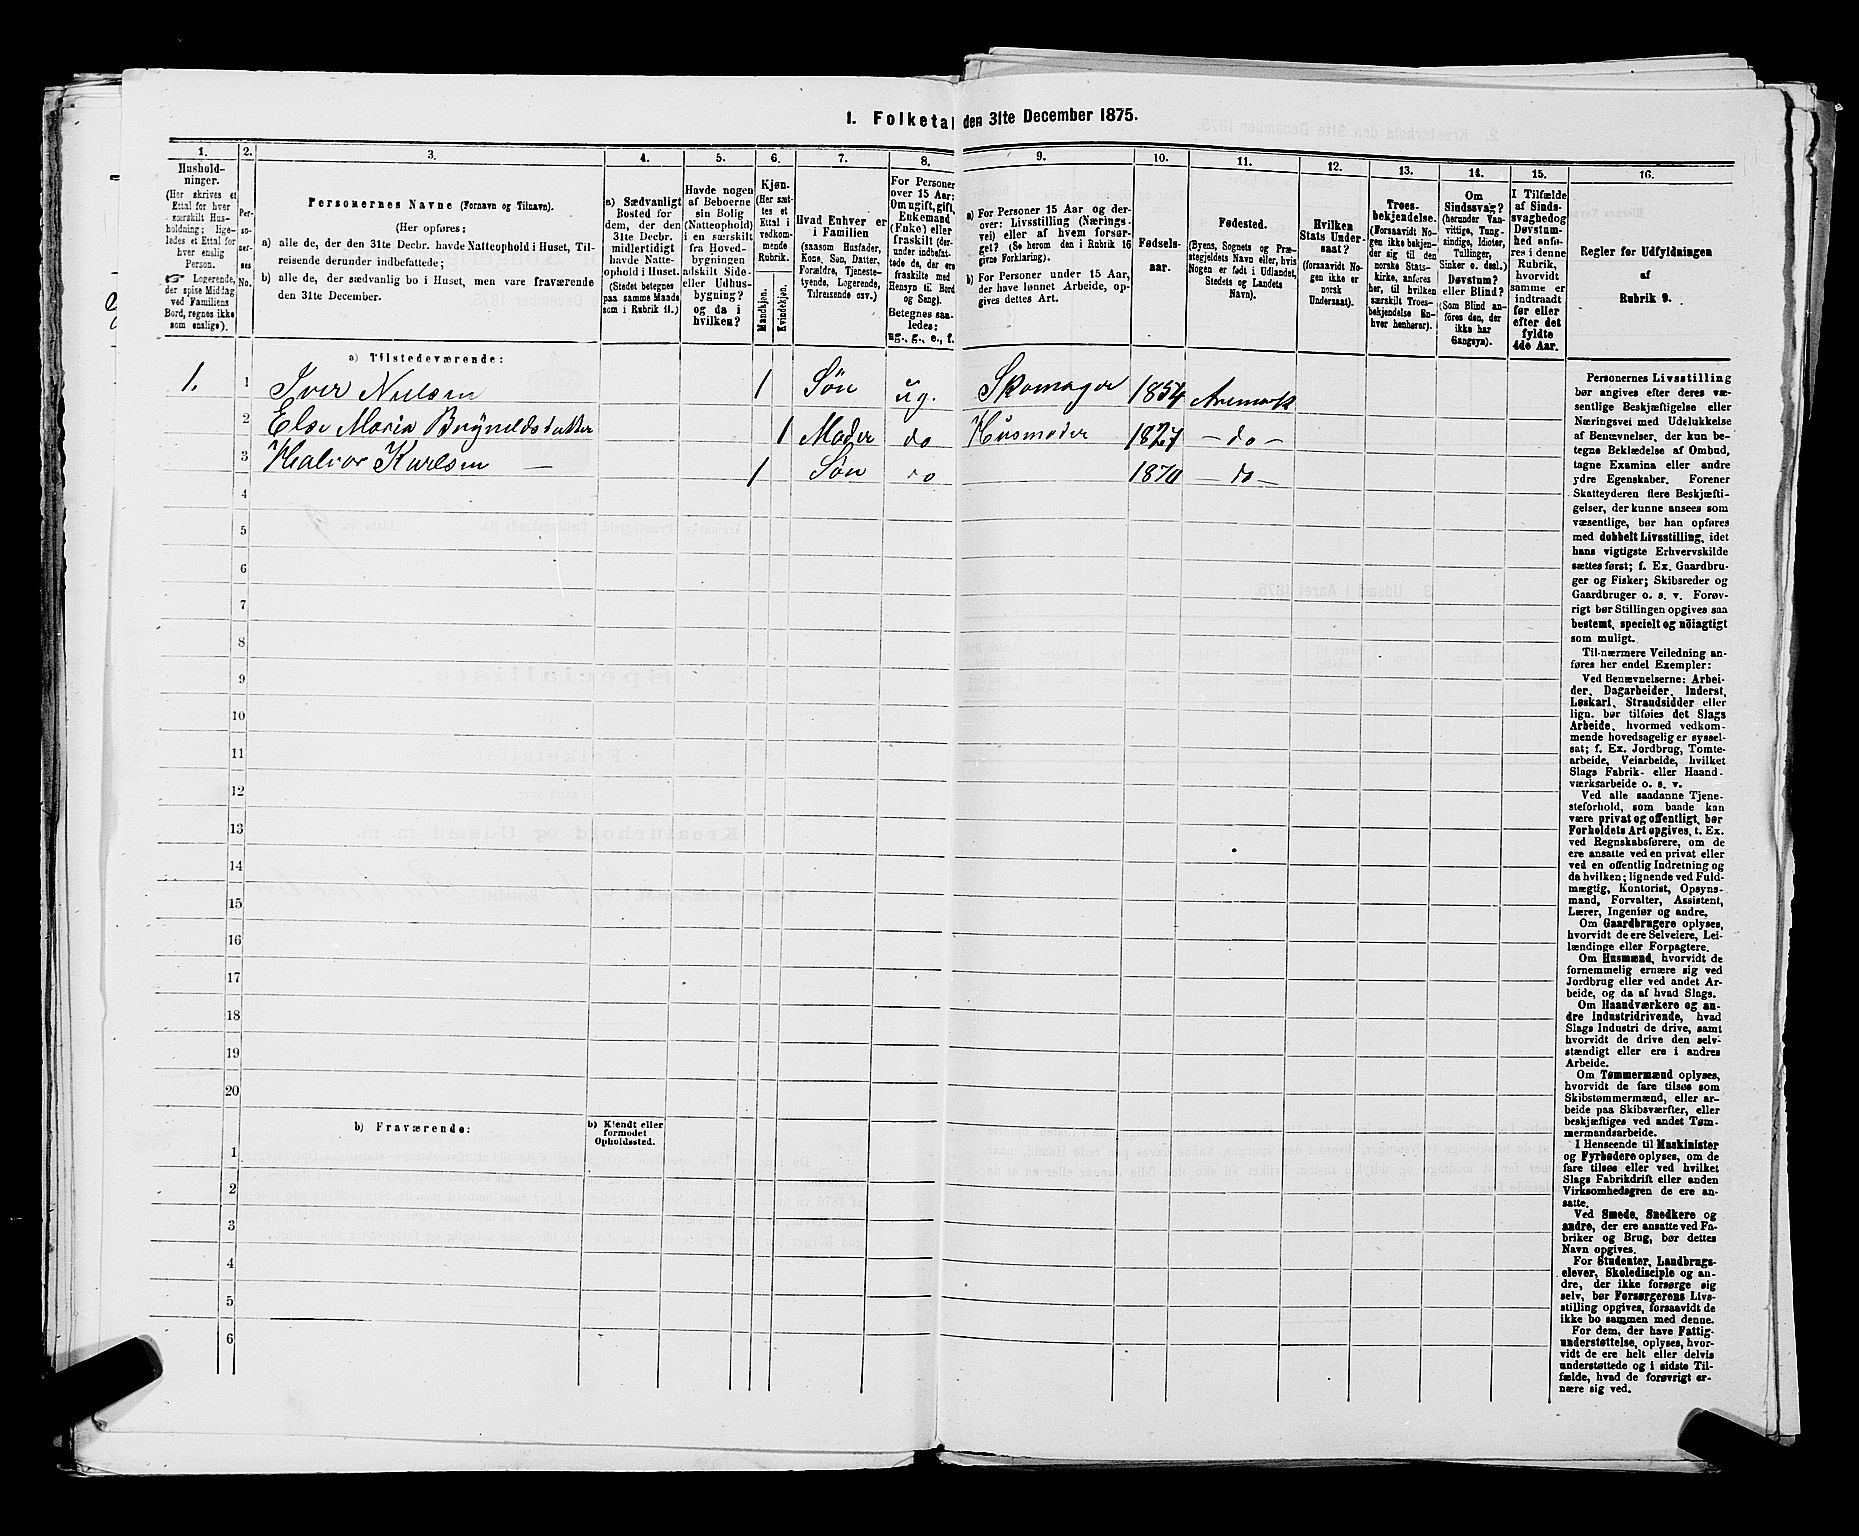 1. Folketal den 31te December 1875.
1.
Husholdninger.
(Her skrives et
Ettal for hver
særskilt Husholdning;
ligeledes et Ettal for
hver enslig
Person.
☞ Logerende,
der spise Middag
ved Familiens
Bord, regnes ikke
som enslige).
2.
Personernes
No.
3.
Personernes Navne (Fornavn og Tilnavn).
(Her opføres:
a) alle de, der den 31te Decbr. havde Natteophold i Huset, Tilreisende derunder indbefattede;
b) alle de, der sædvanlig bo i Huset, men vare fraværende
den 31te December.
4.
a) Sædvanligt
Bosted for
dem, der den
31te Decbr.
midlertidigt
havde Natteophold i Huset.
(Stedet betegnes
paa samme Maade
som i Rubrik 11.)
5.
Havde nogen
af Beboerne
sin Bolig
(Natteophold)
i en særskilt
fra Hovedbygningen
adskilt Side-
eller Udhusbygning?
og da i
hvilken?
6.
Kjøn.
(Her sættes et
Ettal i
vedkommende
Rubrik.
Mandkjøn.
Kvindekjøn.
7.
Hvad Enhver er
i Familien
(saasom Husfader,
Kone, Søn, Datter,
Forældre, Tjenestetyende, Logerende,
Tilreisende osv.)
8.
For Personer
over 15 Aar:
Om ugift, gift,
Enkemand
(Enke) eller
fraskilt (derunder indbefattede de, der ere
fraskilte med
Hensyn til Bord
og Seng).
Betegnes saaledes:
ug., g., e., f.
9.
a) For Personer 15 Aar og derover: Livsstilling (Næringsvei) eller af hvem forsørget? (Se herom den i Rubrik 16
givne Forklaring).
b) For Personer under 15 Aar,
der have lønnet Arbeide, opgives dettes Art.
10.
Fødselsaar.
11.
Fødested.
(Byens, Sognets og Præstegjeldets Navn eller, hvis
Nogen er født i Udlandet,
Stedets og Landets
Navn).
12.
Hvilken
Stats Undersaat?
(forsaavidt Nogen ikke er
norsk
Undersaat).
13.
Troesbekjendelse.
(Forsaavidt Nogen ikke bekjender sig til den
norske Statskirke, anføres
her, til hvilken
særskilt Troesbekjendelse Enhver henhører).
14.
Om
Sindssvag?
(herunder Vanvittige, Tungsindige, Idioter,
Tullinger,
Sinker o. desl.)
Døvstum?
eller Blind?
(Som Blind anføres den, der
ikke har
Gangsyn).
15.
I Tilfælde
af Sindssvaghed og
Døvstumhed anføres i denne
Rubrik,
hvorvidt
samme er
indtraadt
før eller
efter det
fyldte
4de Aar.
16.
Regler for Udfyldningen
af
Rubrik 9.
a) Tilstedeværende:
1. 1 Iver Nielsen 1 Søn ug. Skomager 1854 Aremark
2 Else Maria Brynildsdatter 1 Moder do Husmoder 1827 – do –
3 Halvor Karlsen — 1 Søn do 1870 – do –
4
5
6
7
8
9
10
11
12
13
14
15
16
17
18
19
20
b) Fraværende:
b) Kjendt eller
formodet
Opholdssted.
1
2
3
4
5
6
Personernes Livsstilling
bør angives efter deres væsentlige Beskjæftigelse eller
Næringsvei med Udelukkelse
af Benævnelser, der kun betegne Beklædelse af Ombud,
tagne Examina eller andre
ydre Egenskaber. Forener
Skatteyderen flere Beskjæftigelser, der kunne ansees som
væsentlige, bør han opføres
med dobbelt Livsstilling, idet
hans vigtigste Erhvervskilde
sættes først; f. Ex. Gaardbruger og Fisker; Skibsreder og
Gaardbruger o. s. v. Forøvrigt bør Stillingen opgives saa
bestemt, specielt og nøiagtigt
som muligt.
Til nærmere Veiledning anføres her endel Exempler:
Ved Benævnelserne: Arbeider, Dagarbeider, Inderst,
Løskarl, Strandsidder eller
lign. bør tilføies det Slags
Arbeide, hvormed vedkommende hovedsagelig er sysselsat; f. Ex. Jordbrug, Tomtearbeide, Veiarbeide, hvilket
Slags Fabrik- eller Haandværksarbeide o. s. v.
Ved alle saadanne Tjenesteforhold, som baade kan
være privat og offentligt, bør
Forholdets Art opgives, t. Ex.
ved Regnskabsførere, om de
ere ansatte ved en privat eller
ved en offentlig Indretning og
da hvilken; lignende ved Fuldmægtig, Kontorist, Opsynsmand, Forvalter, Assistent,
Lærer, Ingeniør og andre.
Om Gaardbrugere oplyses,
hvorvidt de ere Selveiere, Leilændinge eller Forpagtere.
Om Husmænd, hvorvidt de
fornemmelig ernære sig ved
Jordbrug eller ved andet Arbeide, og da af hvad Slags.
Om Haandværkere og andre Industridrivende, hvad
Slags Industri de drive, samt
hvorvidt de drive den selvstændigt eller ere i andres
Arbeide.
Om Tømmermænd oplyses,
hvorvidt de fare tilsøs som
Skibstømmermænd, eller arbeide paa Skibsværfter, eller
beskjæftiges ved andet Tømmermandsarbeide.
I Henseende til Maskinister
og Fyrbødere oplyses, om de
fare tilsøs eller ved hvilket
Slags Fabrikdrift eller anden
Virksomhedsgren de ere ansatte.
Ved Smede, Snedkere og
andre, der ere ansatte ved Fabriker og Brug, bør dettes
Navn opgives.
For Studenter, Landbrugselever, Skoledisciple og andre, der ikke forsørge sig
selv, bør Forsørgerens Livsstilling opgives, forsaavidt de
ikke bo sammen med denne.
For dem, der have Fattigunderstøttelse, oplyses, hvorvidt de ere helt eller delvis
understøttede og i sidste Tilfælde, hvad de forøvrigt ernære sig ved.